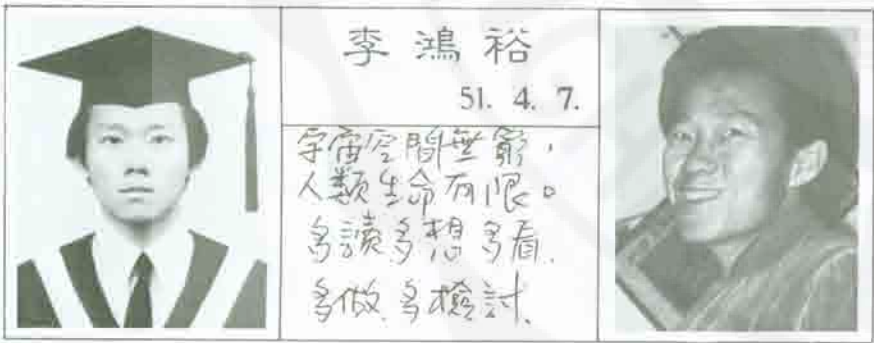 李鴻裕
51. 4. 7.
宇宙空間無窮，
人類生命有限。
多讀多想多看.
多做.多檢討.